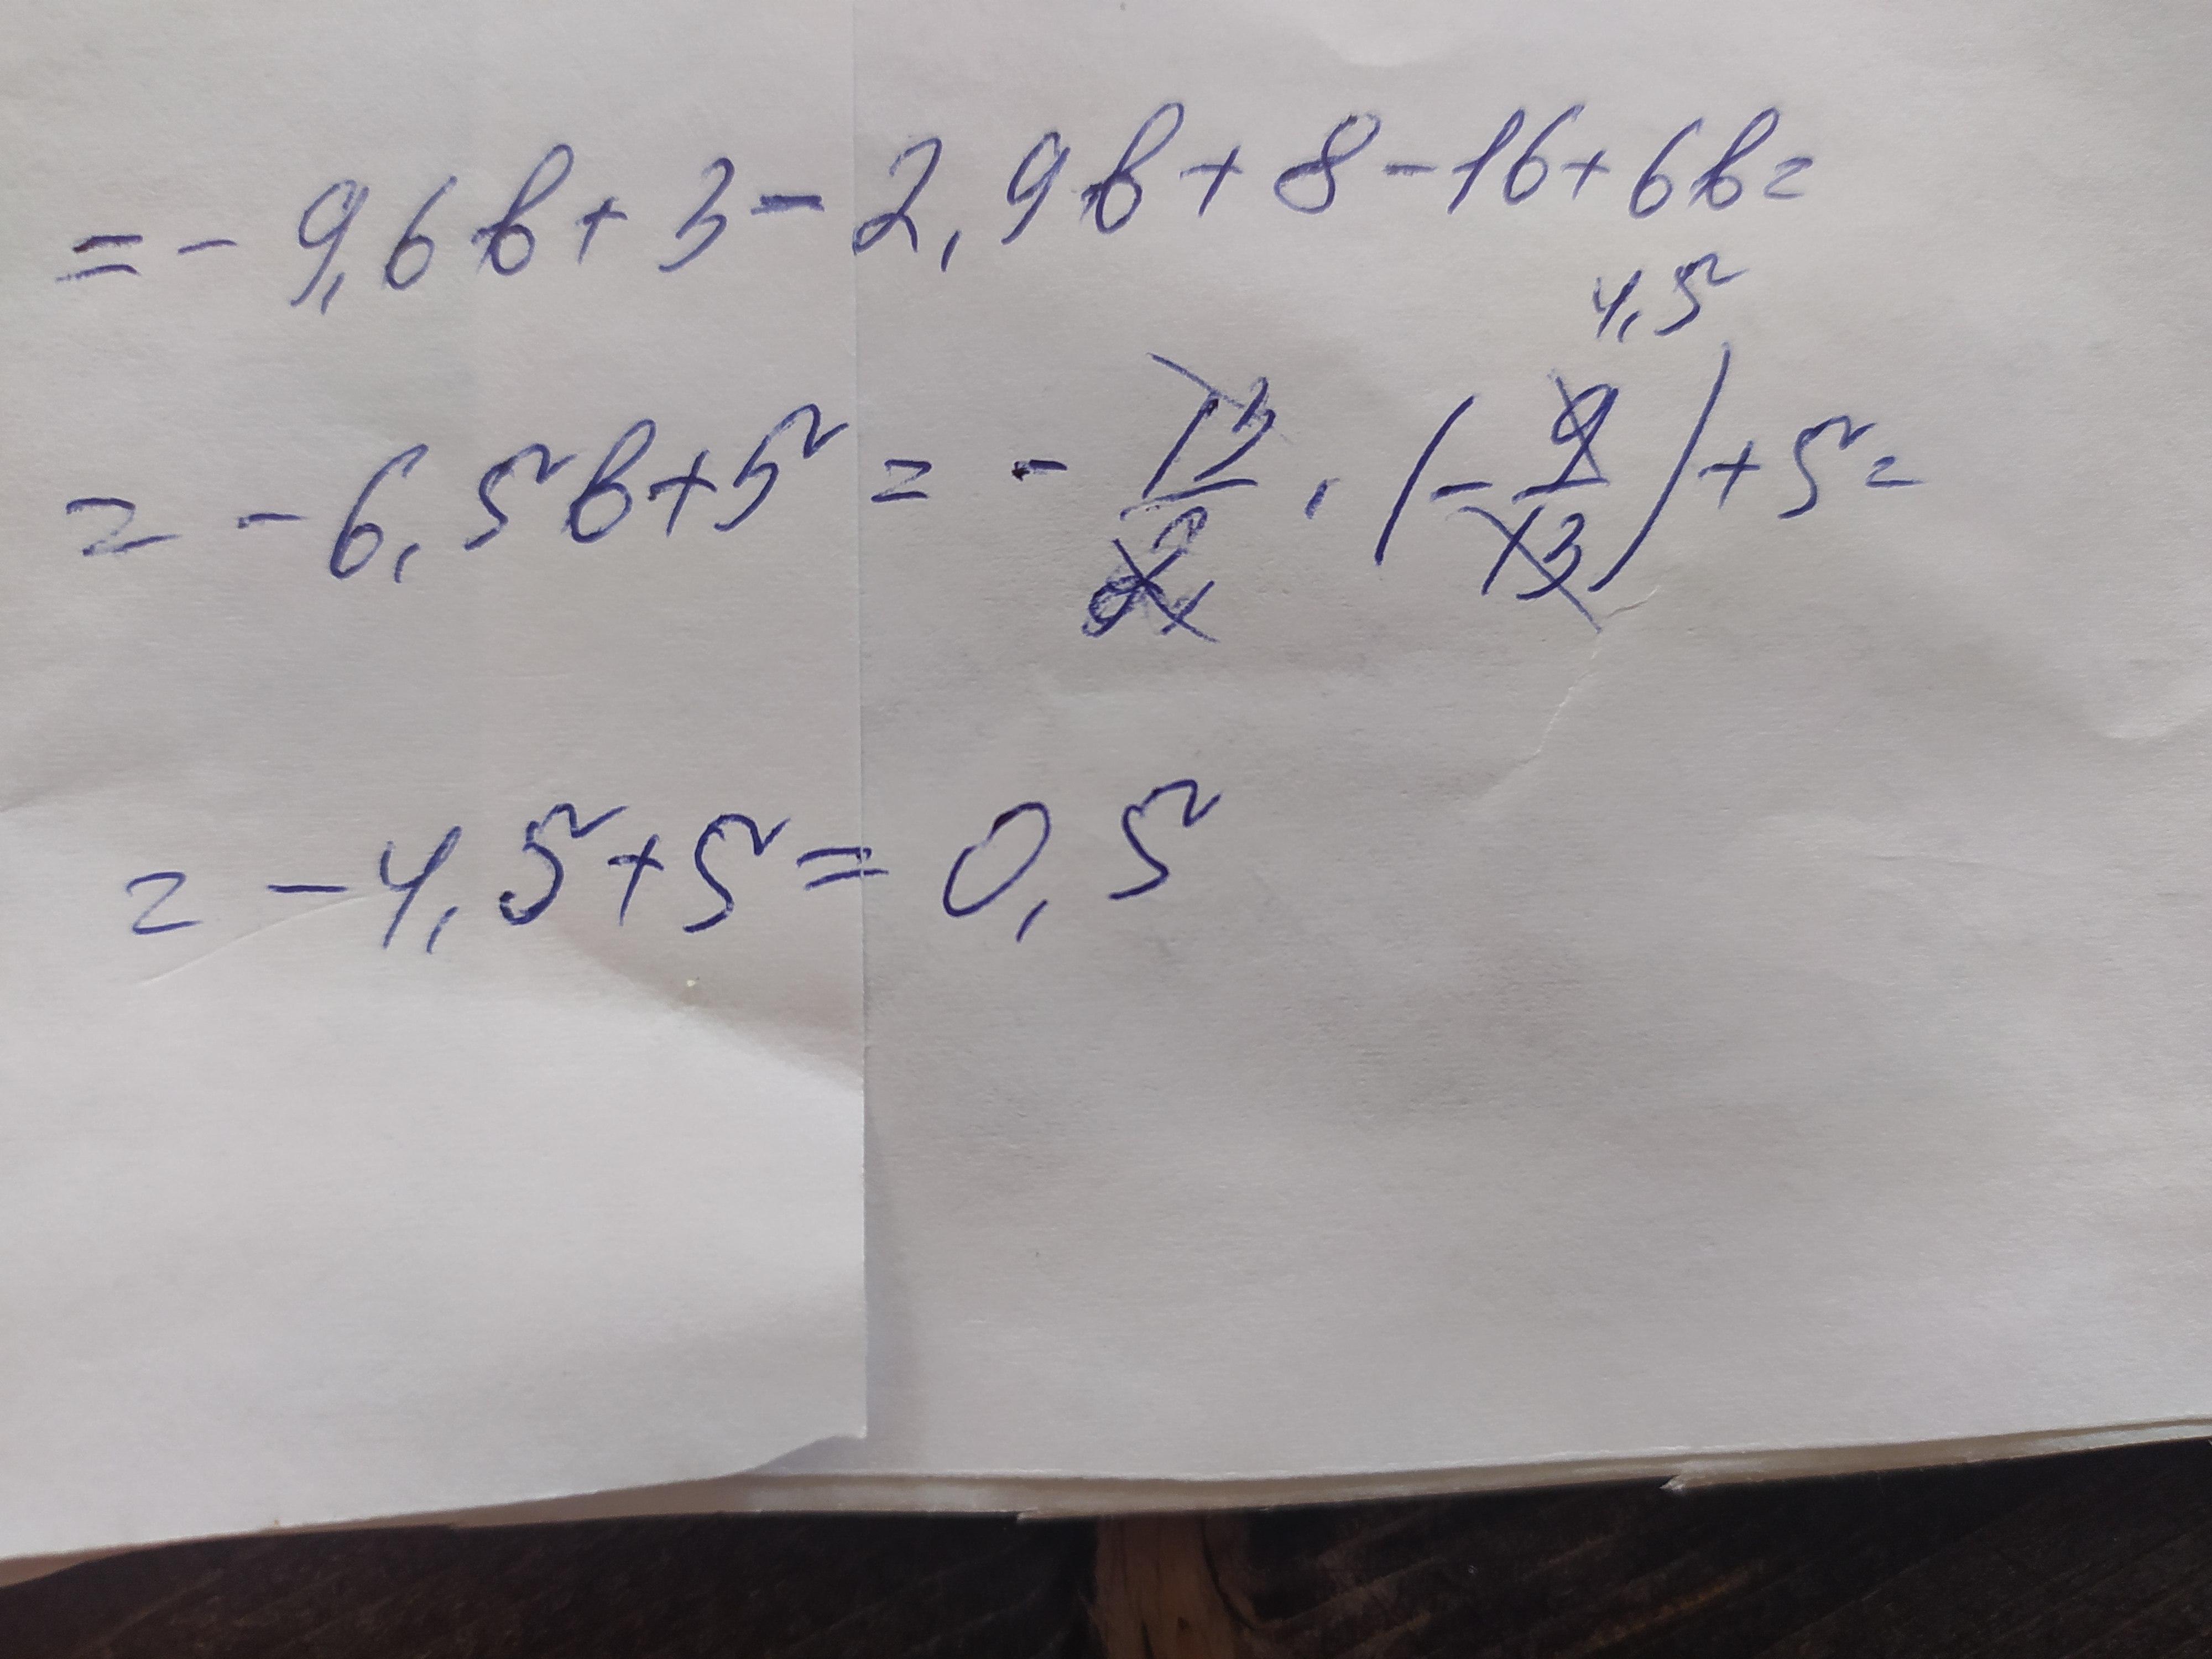 = - 9,6b + 3 - 2,9b + 8 - 16 + 6b =
= - 6,5b + 5 = - 13/2 · (- 9/13) + 5 =
4,5
= - 4,5 + 5 = 0,5